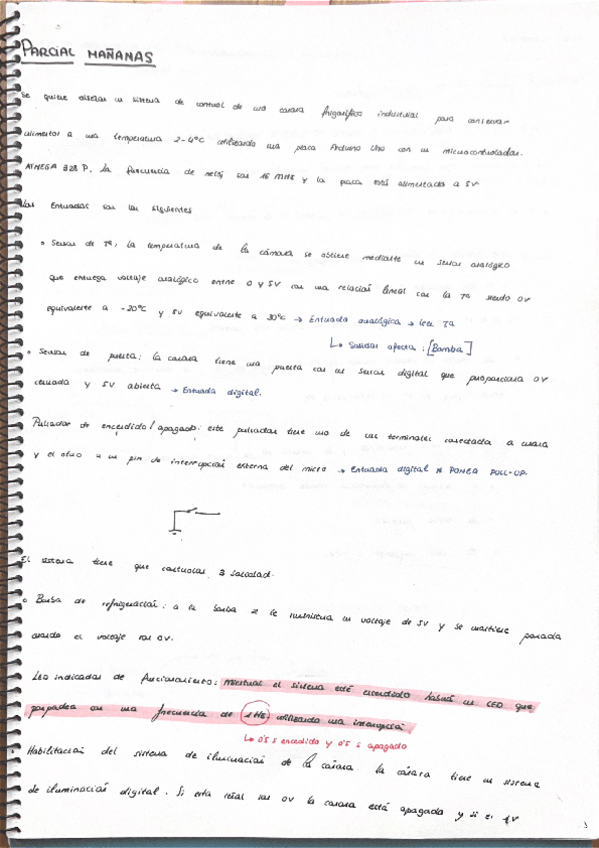 PARCIAL MAÑANAS
Se quiere diseñar un sistema de control de una cámara frigorífica industrial para conservar
alimentos a una temperatura 2-4ºC utilizando una placa Arduino Uno con un microcontrolador
ATMEGA 328 P. La frecuencia de reloj son 16 MHz y la placa está alimentada a 5V
Las Entradas son las siguientes
• Sensor de Tª: la temperatura de la cámara se obtiene mediante un sensor analógico
que entrega voltaje analógico entre 0 y 5V con una relación lineal con la Tª siendo 0V
equivalente a -20ºC y 5V equivalente a 30ºC → Entrada analógica → leer Tª
↳ Salidas afecta: [Bomba]
• Sensor de puerta: la cámara tiene una puerta con un sensor digital que proporciona 0V
cerrada y 5V abierta → Entrada digital.
Pulsador de encendido/apagado: este pulsador tiene uno de sus terminales conectada a
y el otro a un pin de interrupción externa del micro → Entrada digital PONGA PULL-UP.
El sistema tiene que controlar 3 salidas.
• Bomba de refrigeración: a la bomba se le suministra un voltaje de 5V y se mantiene parada
cuando el voltaje son 0V.
Led indicador de funcionamiento: mientras el sistema esté encendido habrá un LED que
parpadea con una frecuencia de 1Hz utilizando una interrupción
↳ 0'5 s encendido y 0'5 s apagado
• Habilitación del sistema de iluminación de la cámara. La cámara tiene un sistema
de iluminación digital. Si esta señal son 0V la cámara está apagada y si